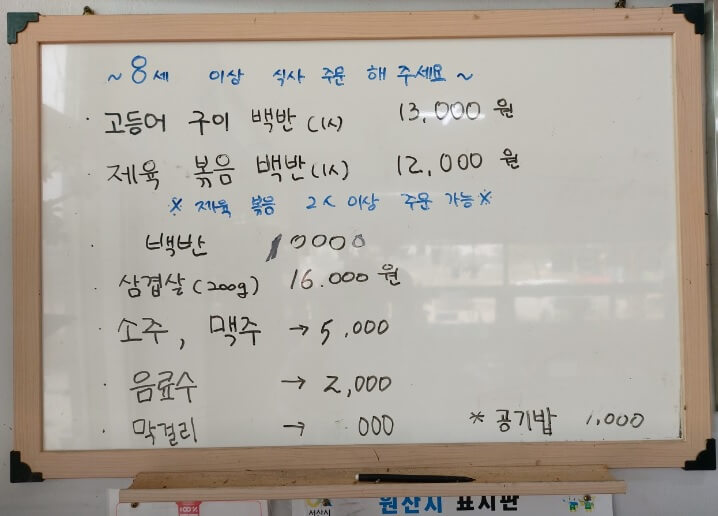 ~ 8세 이상 식사 주문 해 주세요 ~
· 고등어 구이 백반 (1人) 13,000 원
· 제육 볶음 백반 (1人) 12,000 원
※ 제육 볶음 2人 이상 주문 가능 ※
· 백반 10000
· 삼겹살 (200g) 16.000 원
· 소주, 맥주 → 5,000
· 음료수 → 2,000
· 막걸리 → 000
* 공기밥 1,000
100%
서산시
원산시 표시판